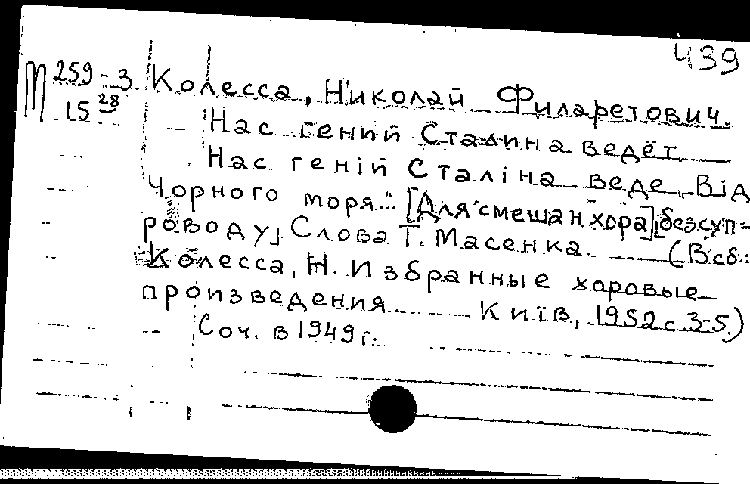 439
М 259-3 Колесса, Николай Филаретович.
15 28
Нас гений Сталина ведёт
Нас геній Сталіна веде. Від
Чорного моря..: [Для смешан хора] без суп-
роводу, Слова Т. Масенка. (В сб.:
Колесса, Н. Избранные хоровые
произведения Київ, 1952 с 3-5.)
Соч. в 1949 г.